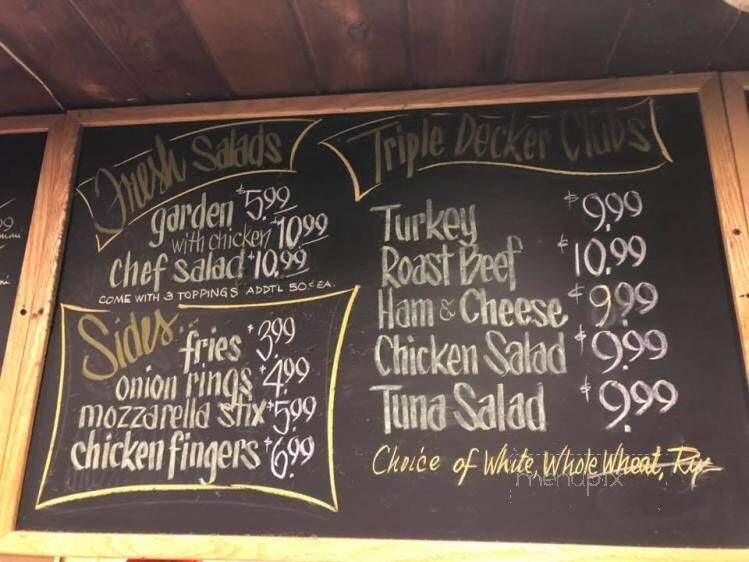 Fresh Salads
garden $5.99
with chicken $10.99
chef salad $10.99
COME WITH 3 TOPPINGS ADDT'L 50¢ EA.
Sides
fries $3.99
onion rings $4.99
mozzarella stix $5.99
chicken fingers $6.99
Triple Decker Clubs
Turkey $9.99
Roast Beef $10.99
Ham & Cheese $9.99
Chicken Salad $9.99
Tuna Salad $9.99
Choice of White, Whole Wheat, Rye
menupix